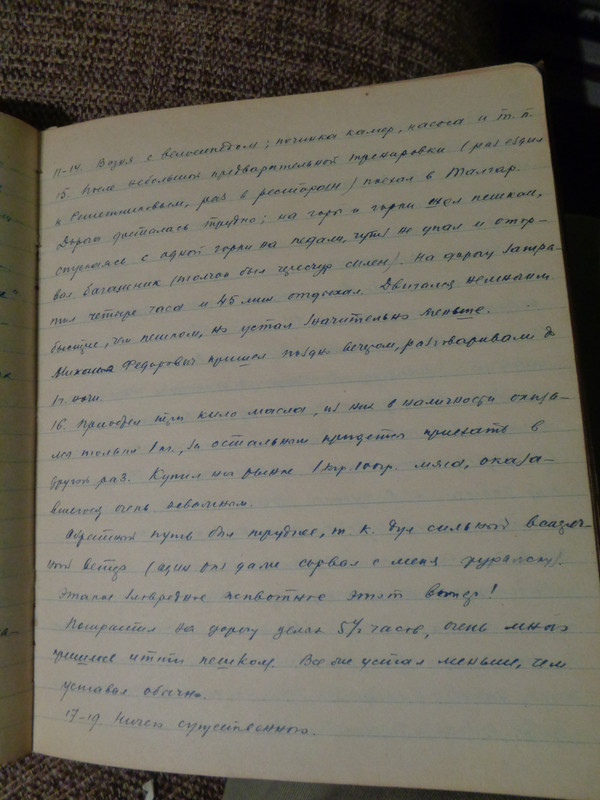 11-14 Возня с велосипедом; починка камер, насоса и т.п.
15. После небольшой предварительной тренировки (раз ездил
к Решетниковым, раз в ресторан) поехал в Талгар.
Дорога досталась трудно; на горы и горки шел пешком,
спускаясь с одной горки на педали, чуть не упал и отор-
вал багажник (толчок был чересчур силен). На дорогу затра-
тил четыре часа и 45 мин отдыхал. Двигался немногим
быстрее, чем пешком, но устал значительно меньше.
Михаил Федорович пришел поздно вечером, разговаривали до
1 ч. ночи.
16. Приобрел три кило масла, из них в наличности оказа-
лся только 1 кг., за остальным придется приехать в
другой раз. Купил на рынке 1 кгр. 100 гр. мяса, оказа-
вшегося очень неважным.
Обратный путь был труднее, т.к. дул сильный встреч-
ный ветер (один раз даже сорвал с меня фуражку).
Этакое зловредное животное этот ветер!
Потратил на дорогу целых 5½ часов, очень много
пришлось итти пешком. Все же устал меньше, чем
уставал обычно.
17-19 Ничего существенного.